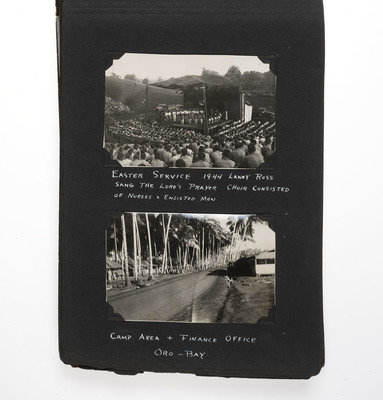 Easter Service 1944 Lanny Ross
sang the Lord's Prayer Choir consisted
of Nurses & Enlisted Men
Camp Area + Finance Office
Oro-Bay